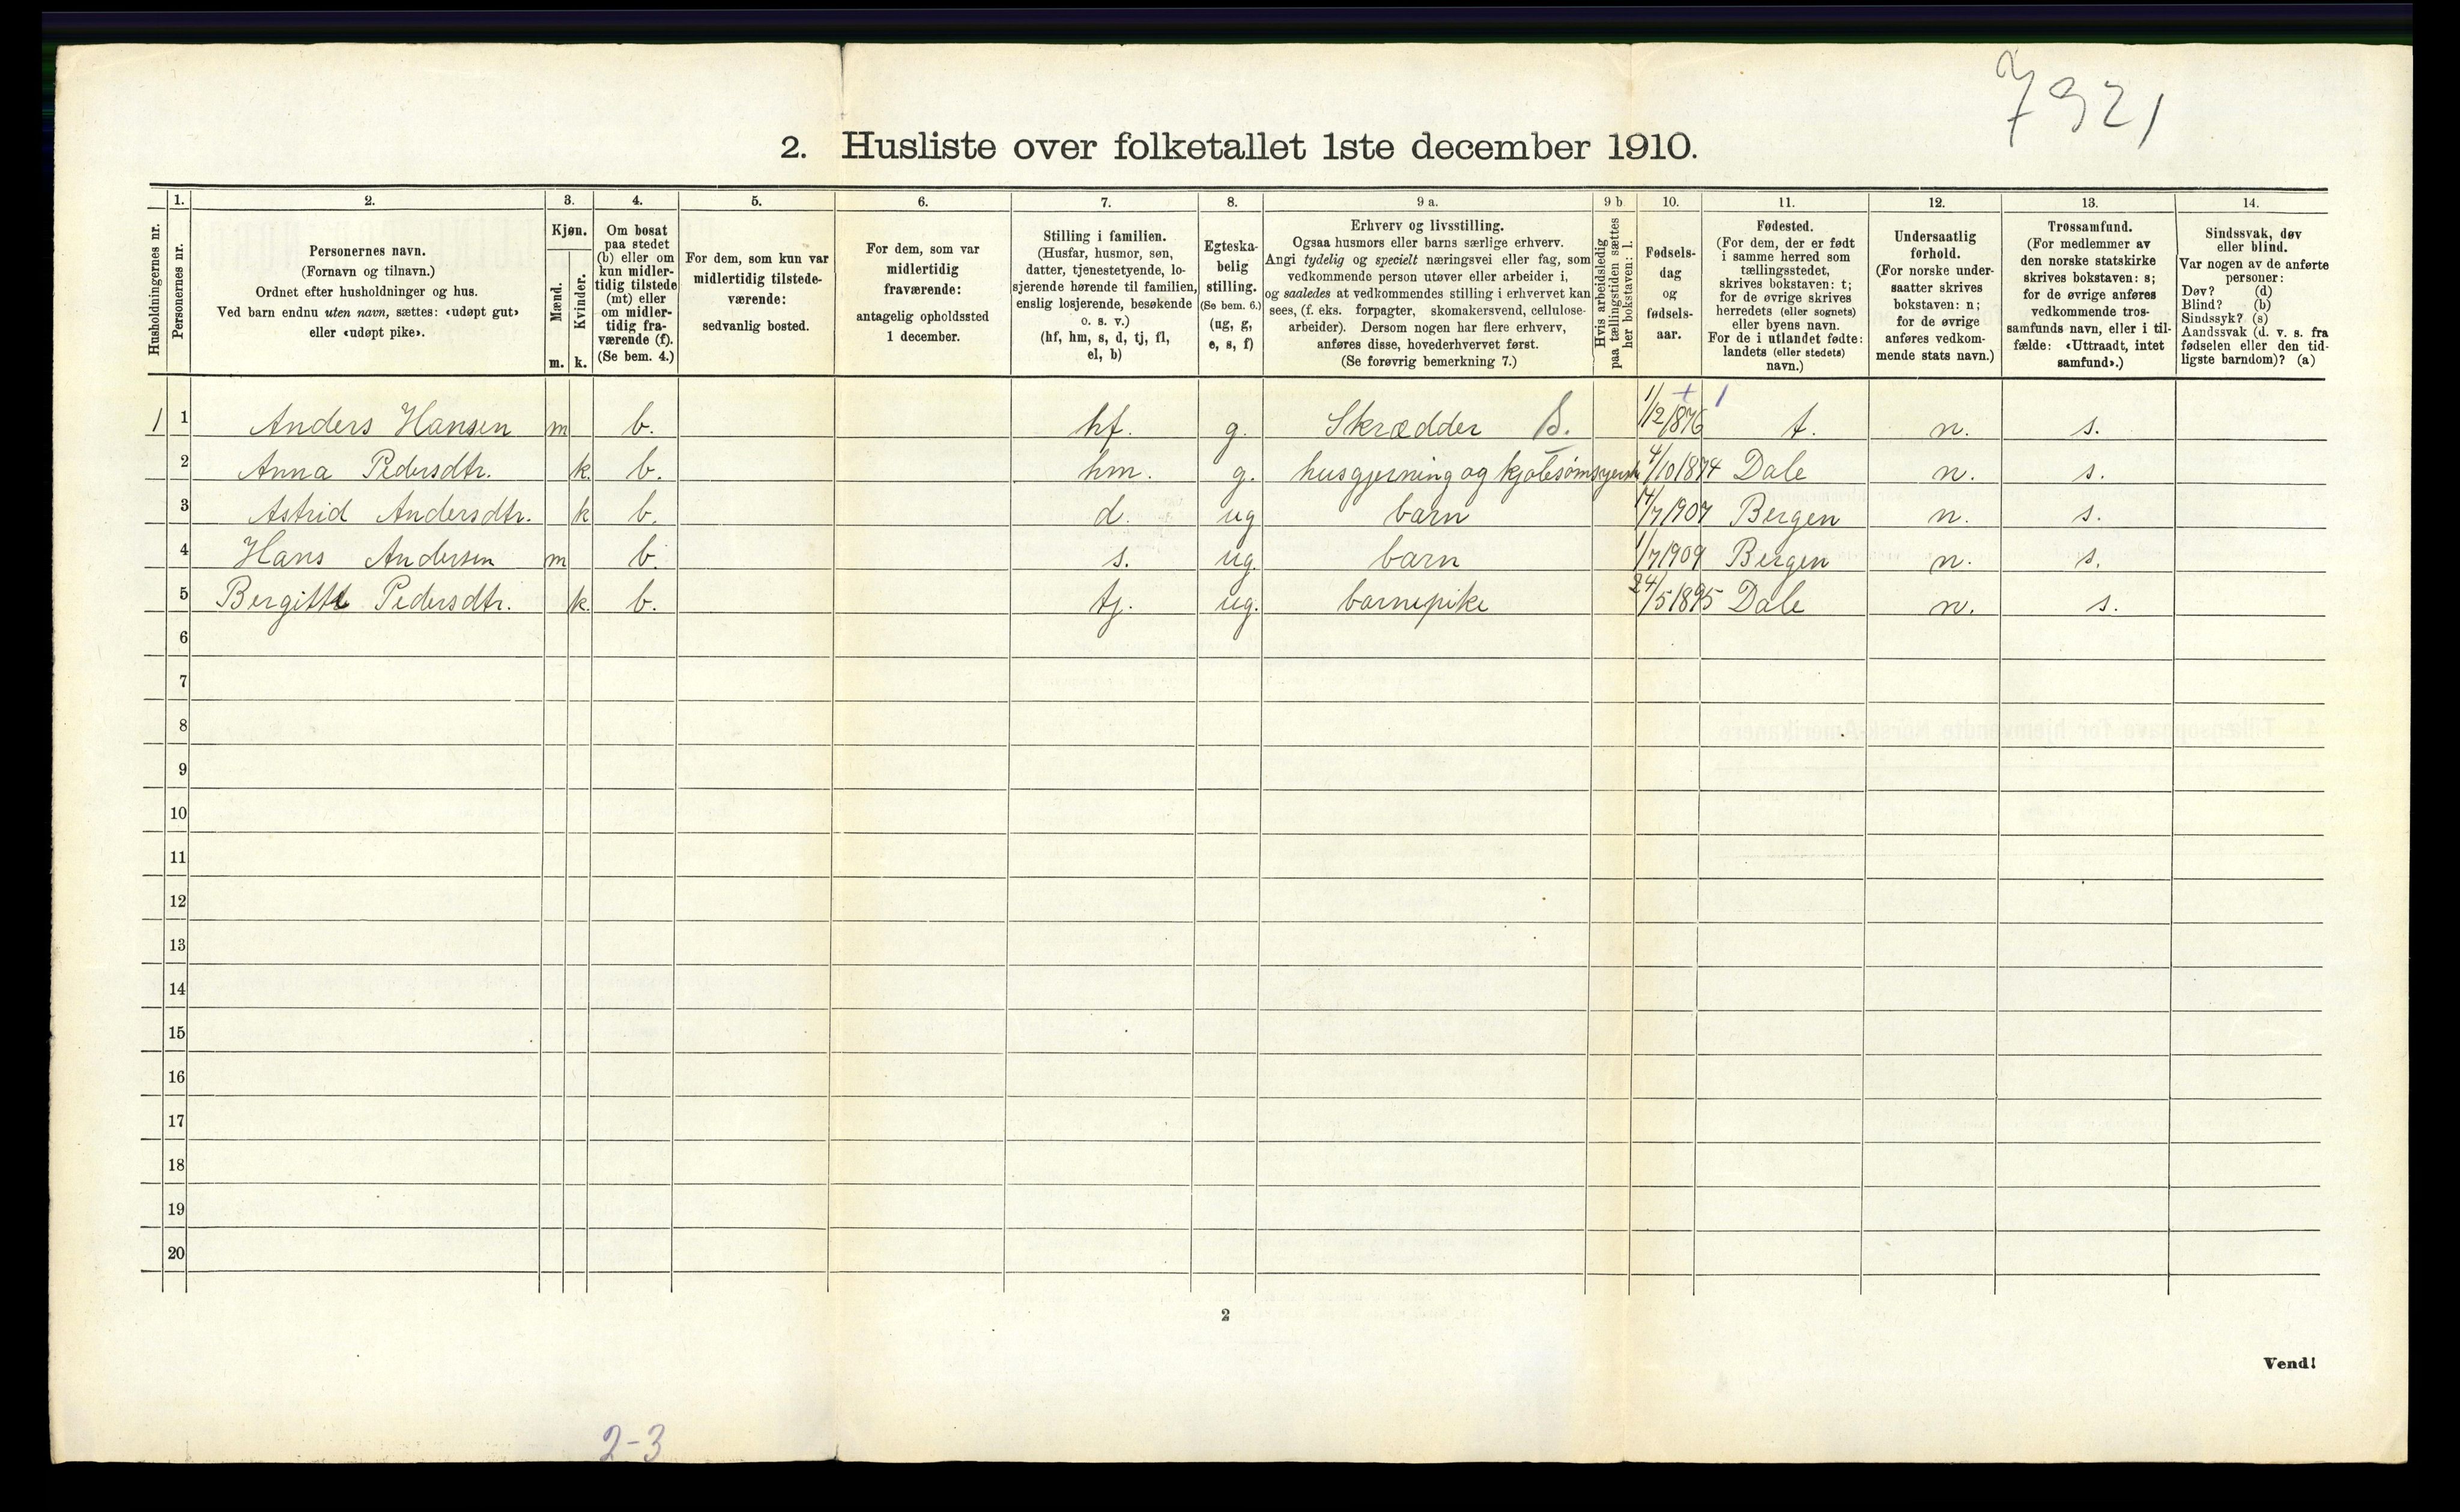 7921
2. Husliste over folketallet 1ste december 1910.
Husholdningernes nr.
1. Personernes nr.
2. Personernes navn.
(Fornavn og tilnavn.)
Ordnet efter husholdninger og hus.
Ved barn endnu uten navn, sættes: «udøpt gut»
eller «udøpt pike».
3. Kjøn.
Mænd. m.
Kvinder. k.
4. Om bosat
paa stedet
(b) eller om
kun midler-
tidig tilstede
(mt) eller
om midler-
tidig fra-
værende (f).
(Se bem. 4.)
5. For dem, som kun var
midlertidig tilstede-
værende:
sedvanlig bosted.
6. For dem, som var
midlertidig
fraværende:
antagelig opholdssted
1 december.
7. Stilling i familien.
(Husfar, husmor, søn,
datter, tjenestetyende, lo-
sjerende hørende til familien,
enslig losjerende, besøkende
o. s. v.)
(hf, hm, s, d, tj, fl,
el, b)
8. Egteska-
belig
stilling.
(Se bem. 6.)
(ug, g,
e, s, f)
9 a. Erhverv og livsstilling.
Ogsaa husmors eller barns særlige erhverv.
Angi tydelig og specielt næringsvei eller fag, som
vedkommende person utøver eller arbeider i,
og saaledes at vedkommendes stilling i erhvervet kan
sees, (f. eks. forpagter, skomakersvend, cellulose-
arbeider). Dersom nogen har flere erhverv,
anføres disse, hovederhvervet først.
(Se forøvrig bemerkning 7.)
9 b Hvis arbeidsledig
paa tællingstiden sættes
her bokstaven: l.
10. Fødsels-
dag
og
fødsels-
aar.
11. Fødested.
(For dem, der er født
i samme herred som
tællingsstedet,
skrives bokstaven: t;
for de øvrige skrives
herredets (eller sognets)
eller byens navn.
For de i utlandet fødte:
landets (eller stedets)
navn.)
12. Undersaatlig
forhold.
(For norske under-
saatter skrives
bokstaven: n;
for de øvrige
anføres vedkom-
mende stats navn.)
13. Trossamfund.
(For medlemmer av
den norske statskirke
skrives bokstaven: s;
for de øvrige anføres
vedkommende tros-
samfunds navn, eller i til-
fælde: «Uttraadt, intet
samfund».)
14. Sindssvak, døv
eller blind.
Var nogen av de anførte
personer:
Døv? (d)
Blind? (b)
Sindssyk? (s)
Aandssvak (d. v. s. fra
fødselen eller den tid-
ligste barndom)? (a)
1 1 Anders Hansen m b. hf. g. Skrædder S. 1/12 1876 + 1 t. n. s.
2 Anna Pedersdtr. k. b. hm. g. husgjerning og kjolesømsyerske 4/10 1874 Dale n. s.
3 Astrid Andersdtr. k b. d. ug barn 14/7 1907 Bergen n. s.
4 Hans Andersen m b. s. ug. barn 1/7 1909 Bergen n. s.
5 Bergitte Pedersdtr. k. b. tj. ug. barnepike 24/5 1895 Dale n. s.
6
7
8
9
10
11
12
13
14
15
16
17
18
19
20
2
Vend!
2-3